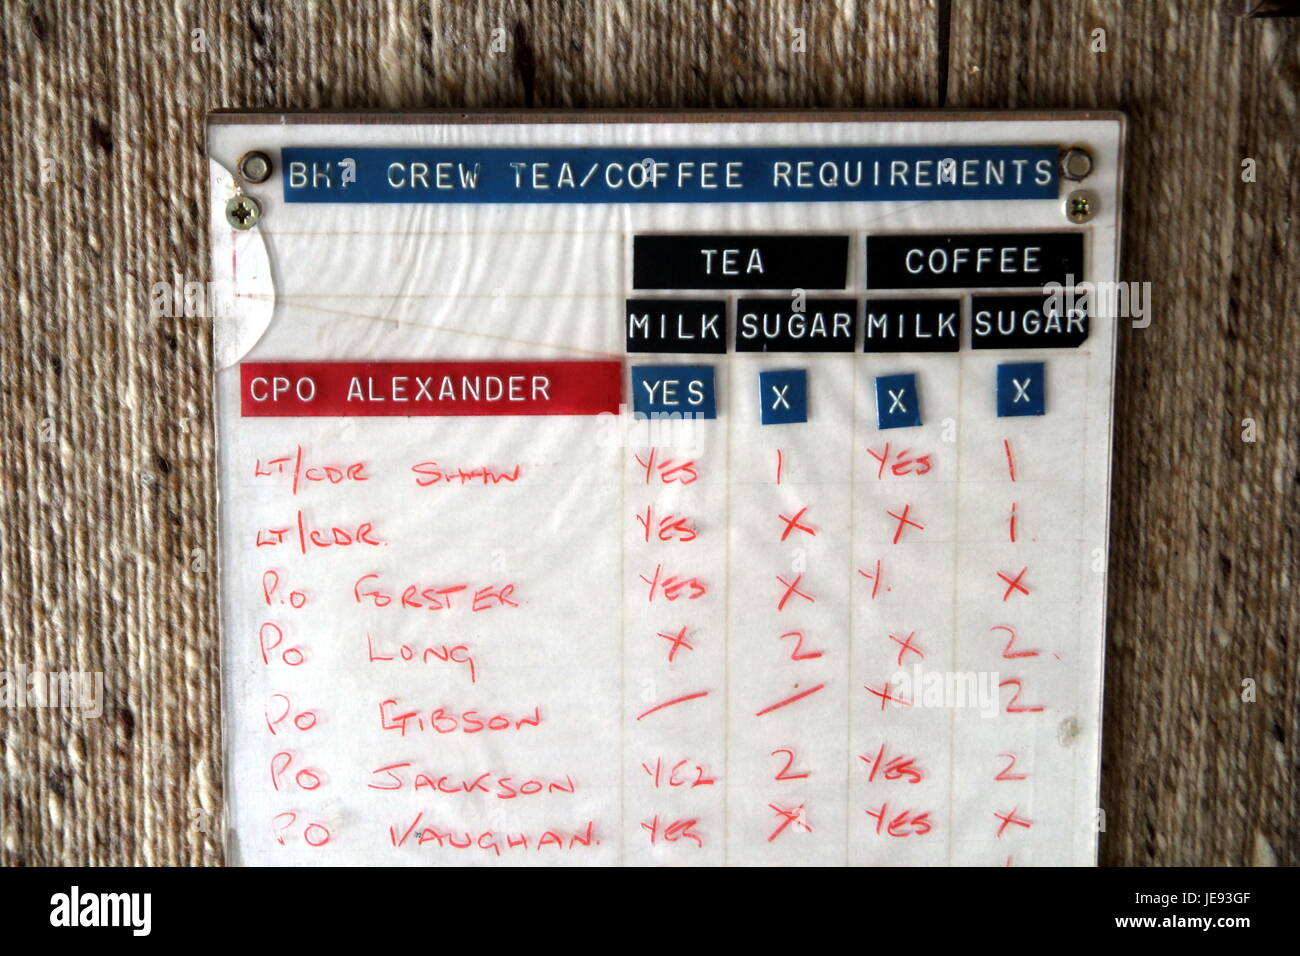 BH7 CREW TEA/COFFEE REQUIREMENTS
TEA COFFEE
MILK SUGAR MILK SUGAR
CPO ALEXANDER YES X X X
LT/CDR SHAW YES 1 YES 1
LT/CDR. YES X X 1
P.O FORSTER. YES X Y. X
PO LONG X 2 X 2.
PO GIBSON / / X 2
PO JACKSON YES 2 YES 2
PO VAUGHAN. YES X YES X
alamy
alamy stock photo
JE93GF
www.alamy.com